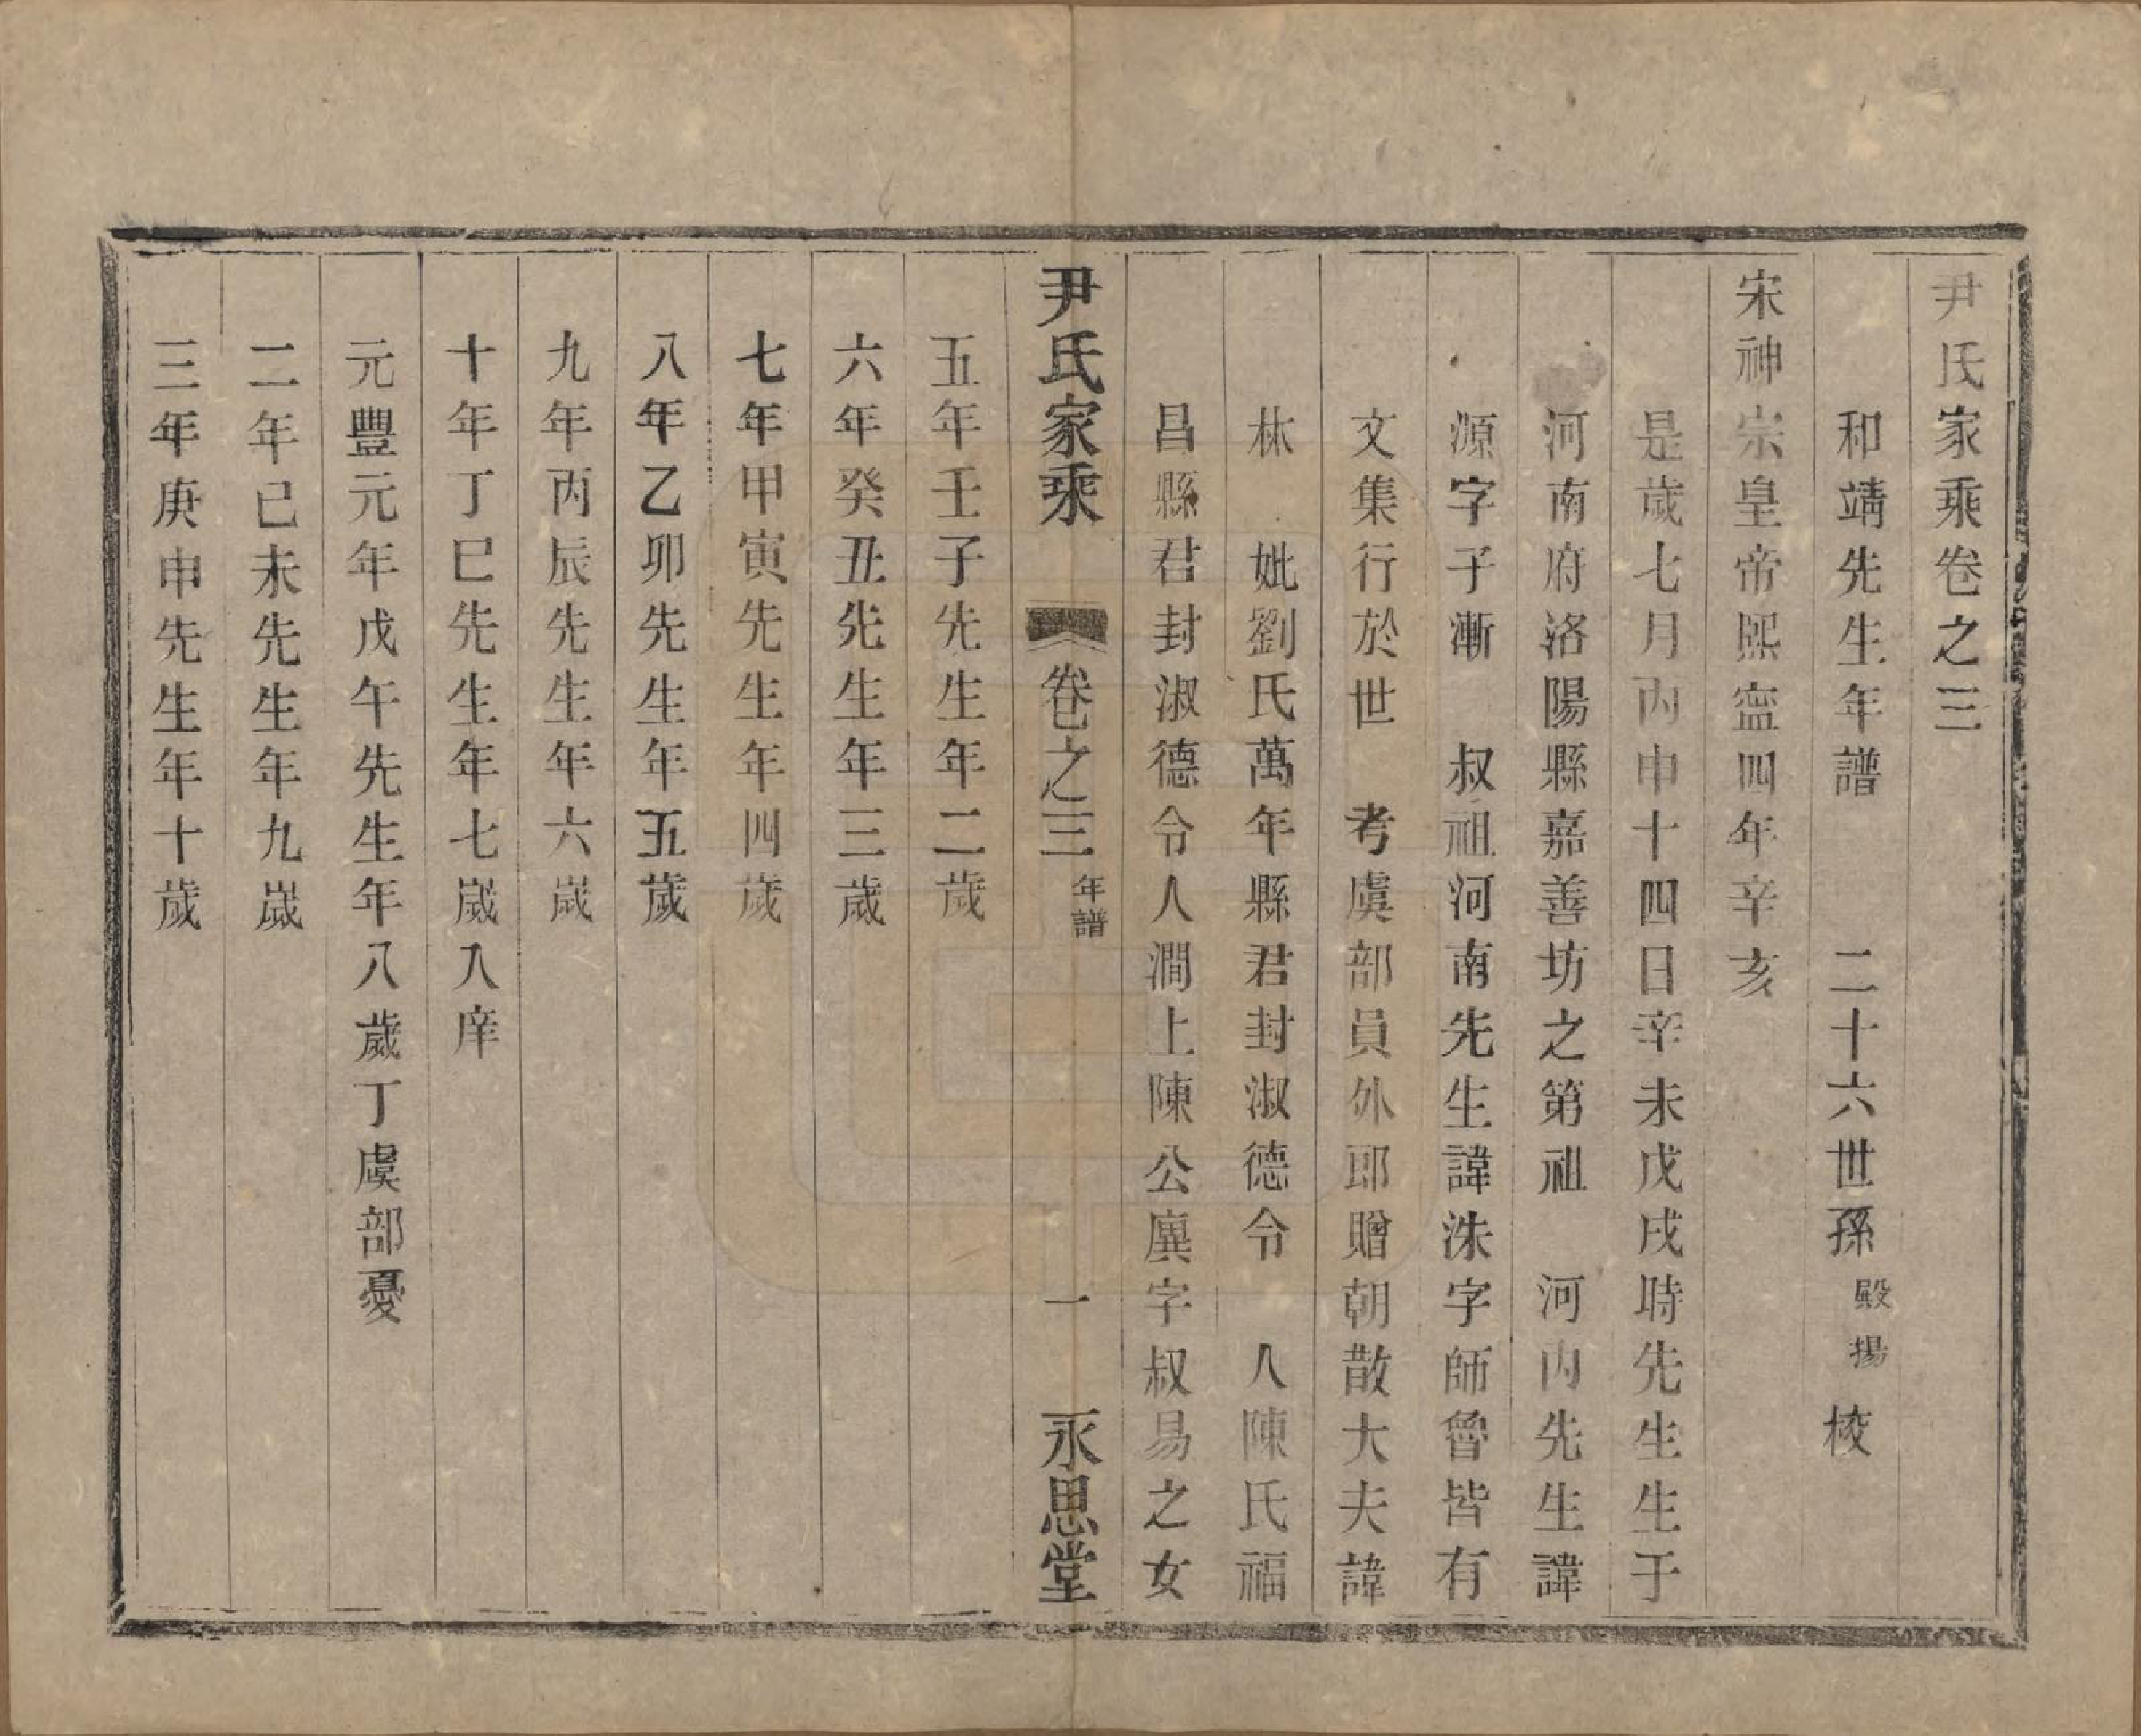 尹氏家乘卷之三
和靖先生年譜　二十六世孫殿揚校
宋神宗皇帝熙寍四年辛亥
是歲七月丙申十四日辛未戊戌時先生生于
河南府洛陽縣嘉善坊之第祖　河內先生諱
源字子漸　叔祖河南先生諱洙字師魯皆有
文集行於世　考虞部員外郎贈朝散大夫諱
林　妣劉氏萬年縣君封淑德令　人陳氏福
昌縣君封淑德令人澗上陳公廙字叔易之女
尹氏家乘　卷之三　年譜　一　永思堂
五年壬子先生年二歲
六年癸丑先生年三歲
七年甲寅先生年四歲
八年乙卯先生年五歲
九年丙辰先生年六歲
十年丁巳先生年七歲入庠
元豐元年戊午先生年八歲丁虞部憂
二年己未先生年九歲
三年庚申先生年十歲